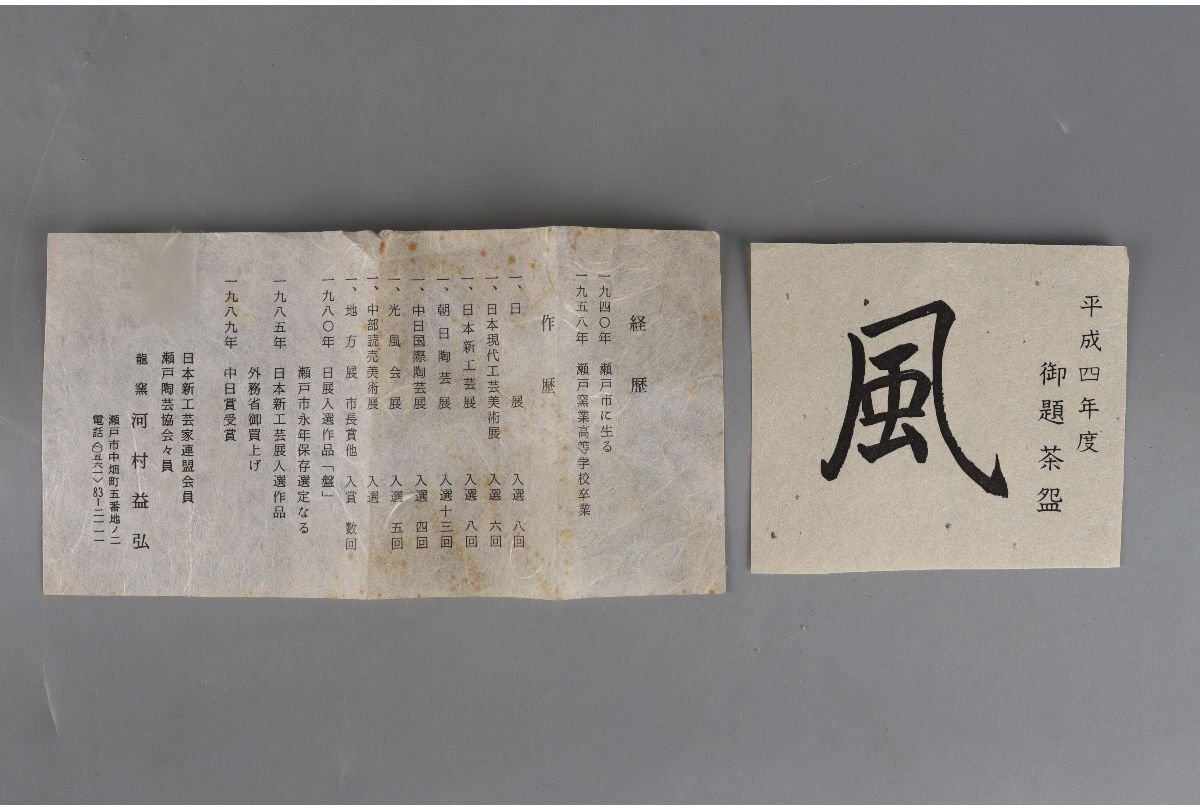 経歴
一九四〇年 瀬戸市に生る
一九五八年 瀬戸窯業高等学校卒業
作歴
一、日展 入選 八回
一、日本現代工芸美術展 入選 六回
一、日本新工芸展 入選 八回
一、朝日陶芸展 入選十三回
一、中日国際陶芸展 入選 四回
一、光風会展 入選 五回
一、中部読売美術展 入選
一、地方展 市長賞他 入賞 数回
一九八〇年 日展入選作品「盤」
瀬戸市永年保存選定なる
一九八五年 日本新工芸展入選作品
外務省御買上げ
一九八九年 中日賞受賞
日本新工芸家連盟会員
瀬戸陶芸協会々員
龍窯 河村益弘
瀬戸市中畑町五番地ノ二
電話〈〇五六一〉83-二一一一
平成四年度
御題茶盌
風